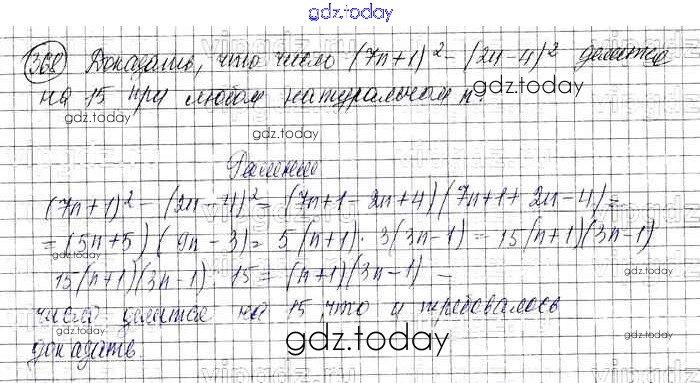 gdz.today
368 Доказать, что число (7n+1)² - (2n-4)² делится
на 15 при любом натуральном n.
gdz.today gdz.today gdz.today
Решение
(7n+1)² - (2n-4)² = (7n+1-2n+4)(7n+1+2n-4) =
= (5n+5)(9n-3) = 5(n+1)·3(3n-1) = 15(n+1)(3n-1)
gdz.today gdz.today gdz.today
15(n+1)(3n-1) : 15 = (n+1)(3n-1) —
число делится на 15, что и требовалось
доказать.
gdz.today gdz.today
gdz.today